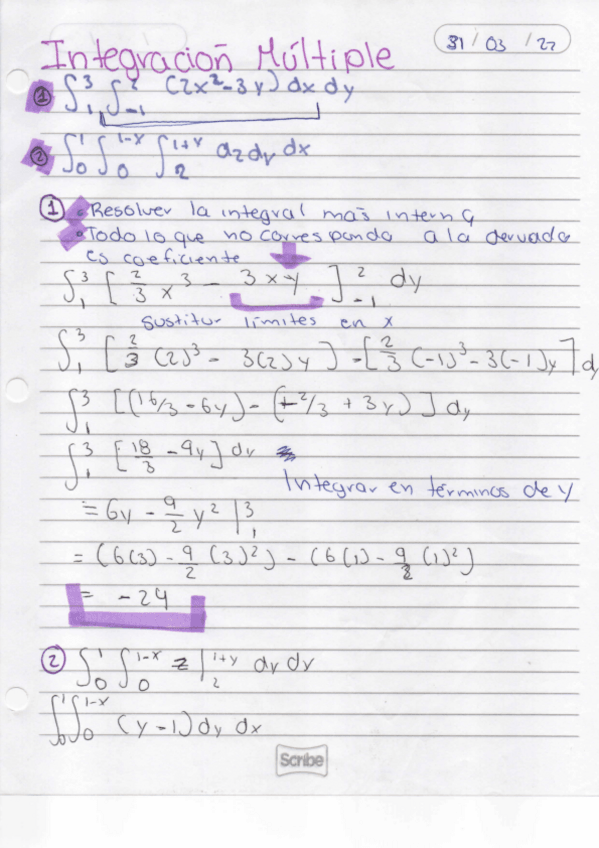 Integración Múltiple
31 / 03 / 22
① ∫₁³ ∫₋₁² (2x² - 3y) dx dy
② ∫₀¹ ∫₀^{1-x} ∫₂^{1+y} dz dy dx
① • Resolver la integral más interna
• Todo lo que no corresponda a la derivada
es coeficiente
∫₁³ [ 2/3 x³ - 3xy ]₋₁² dy
sustitur límites en x
∫₁³ [ 2/3 (2)³ - 3(2)y ] - [ 2/3 (-1)³ - 3(-1)y ] dy
∫₁³ [(16/3 - 6y) - (-2/3 + 3y)] dy
∫₁³ [ 18/3 - 9y ] dy
Integrar en términos de y
= 6y - 9/2 y² |₁³
= (6(3) - 9/2 (3)²) - (6(1) - 9/2 (1)²)
= -24
② ∫₀¹ ∫₀^{1-x} z |₂^{1+y} dy dy
∫₀¹ ∫₀^{1-x} (y - 1) dy dx
Scribe